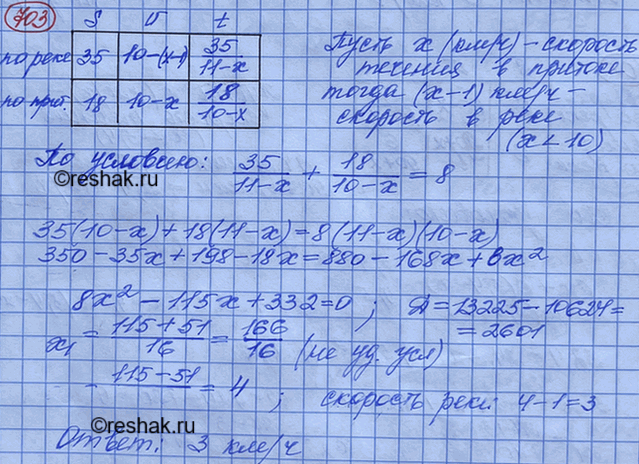 703
S v t
по реке 35 10-(x-1) 35/(11-x)
по прит. 18 10-x 18/(10-x)
Пусть x (км/ч) - скорость
течения в притоке
тогда (x-1) км/ч -
скорость в реке
(x < 10)
По условию: 35/(11-x) + 18/(10-x) = 8
©reshak.ru
35(10-x)+18(11-x)=8(11-x)(10-x)
350-35x+198-18x=880-168x+8x²
8x² - 115x + 332=0 ; Д=13225-10624=
=2601
x₁ = (115+51)/16 = 166/16 (не уд. усл)
(115-51)/ = 4 ; скорость реки 4-1=3
©reshak.ru
Ответ: 3 км/ч